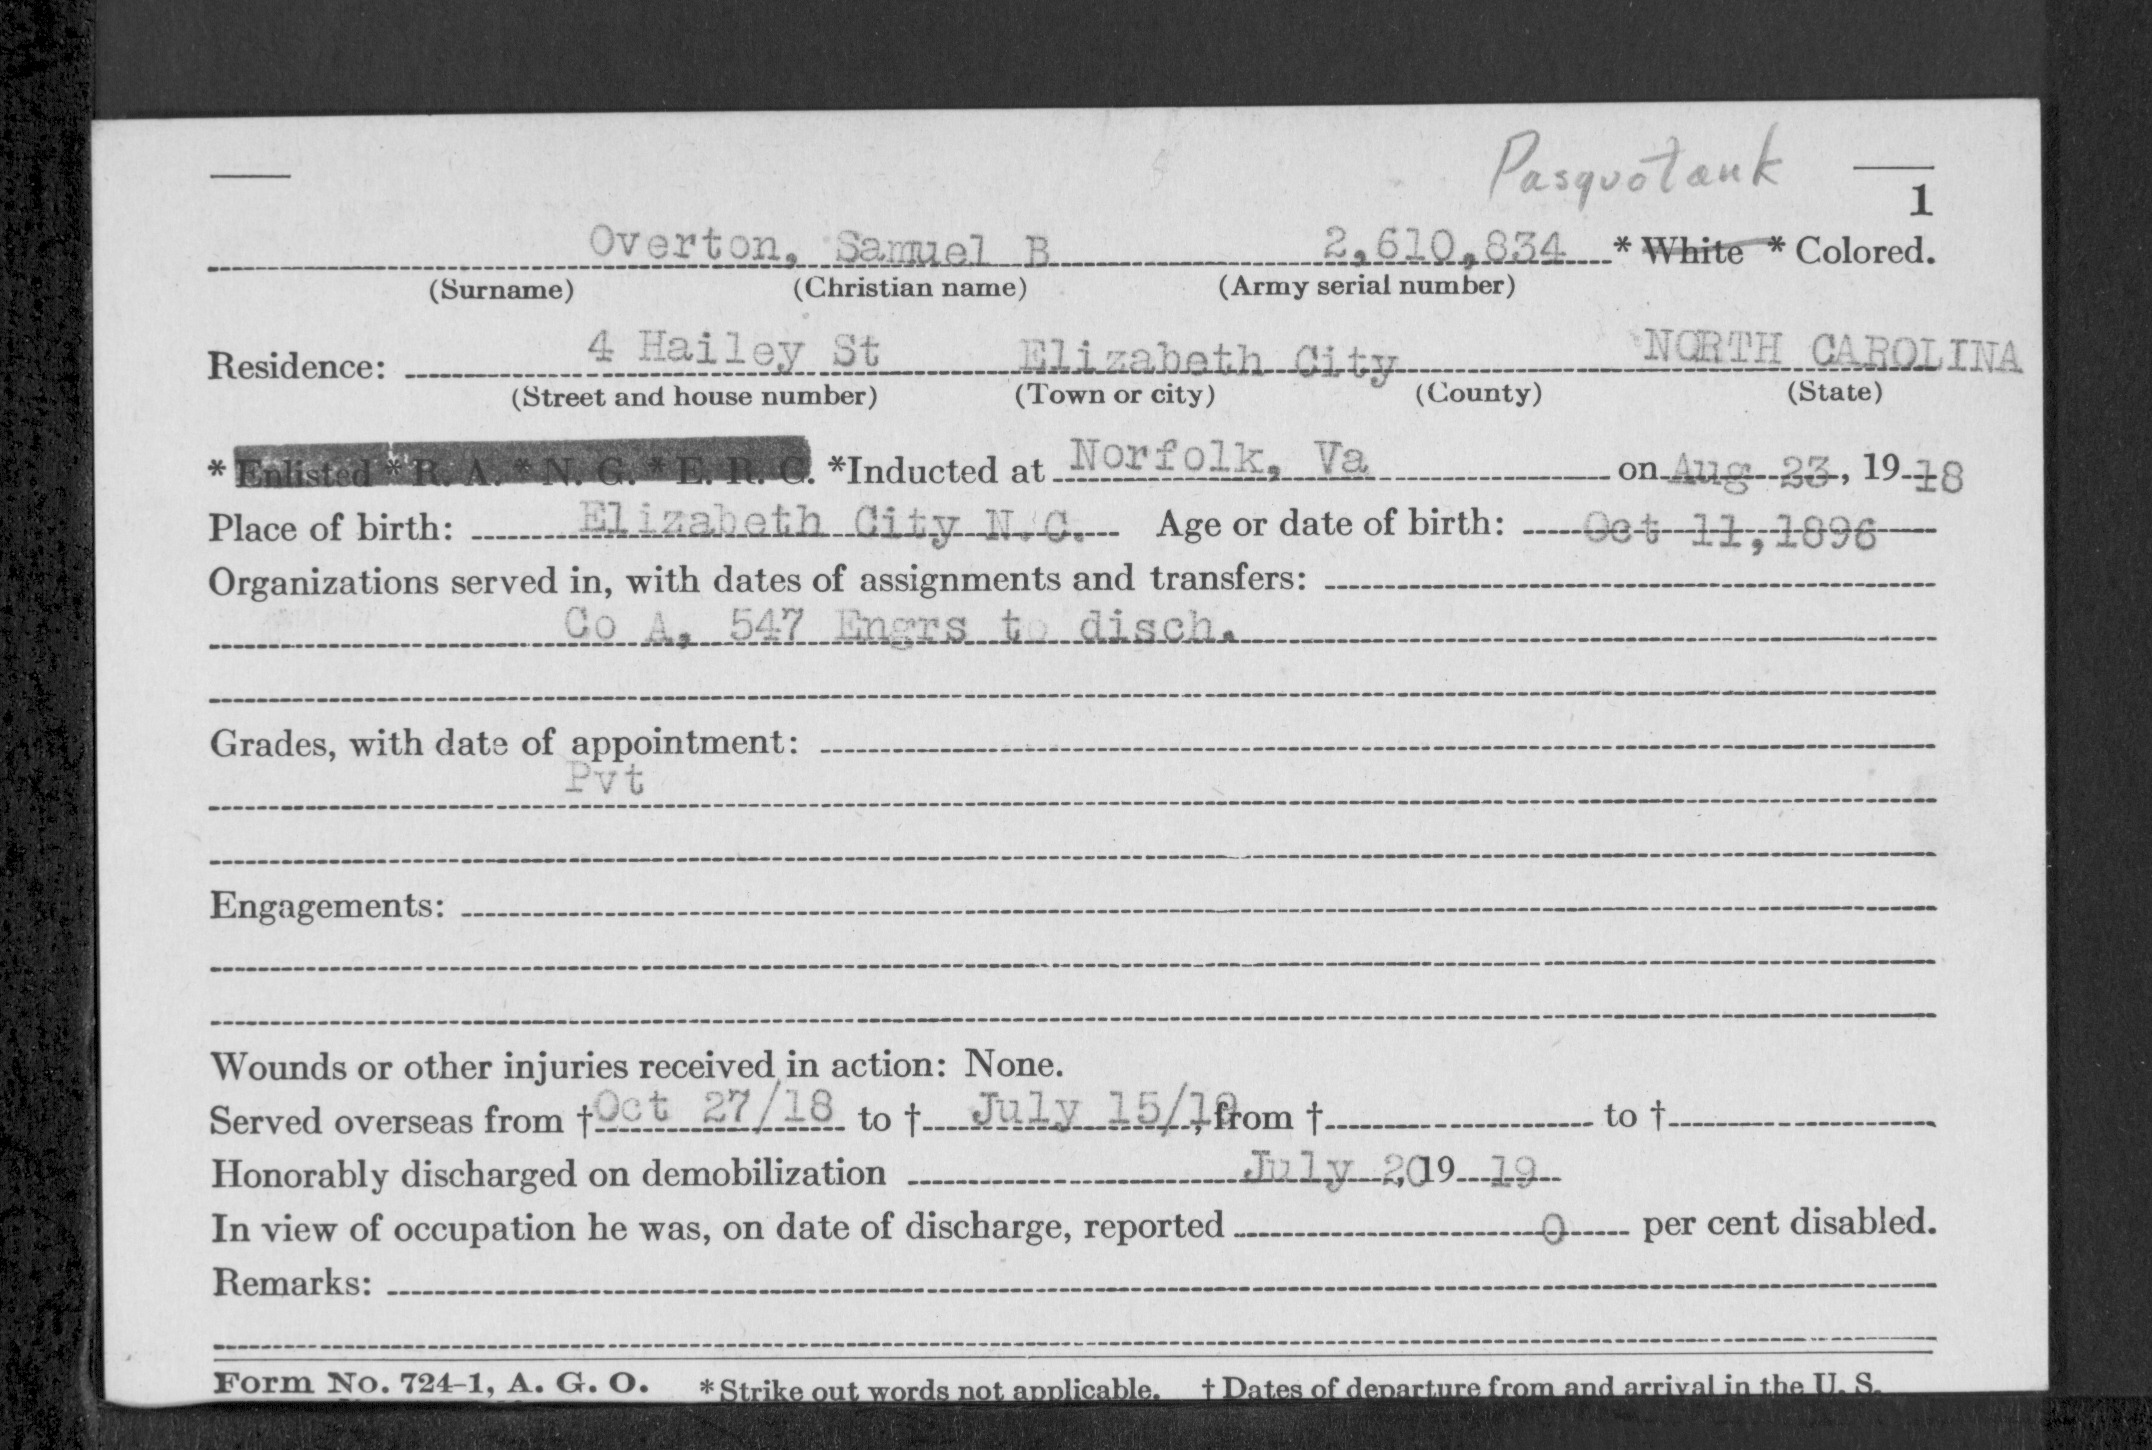 Pasquotank
1
Overton, Samuel B 2,610,834 * White * Colored.
(Surname) (Christian name) (Army serial number)
Residence: 4 Hailey St Elizabeth City NORTH CAROLINA
(Street and house number) (Town or city) (County) (State)
* Enlisted * R. A. * N. G. * E. R. C. *Inducted at Norfolk, Va on Aug 23, 1918
Place of birth: Elizabeth City N.C. Age or date of birth: Oct 11, 1896
Organizations served in, with dates of assignments and transfers:
Co A, 547 Engrs to disch.
Grades, with date of appointment:
Pvt
Engagements:
Wounds or other injuries received in action: None.
Served overseas from † Oct 27/18 to † July 15/19, from † to †
Honorably discharged on demobilization July 20, 19 19
In view of occupation he was, on date of discharge, reported 0 per cent disabled.
Remarks:
Form No. 724-1, A. G. O. * Strike out words not applicable. † Dates of departure from and arrival in the U. S.